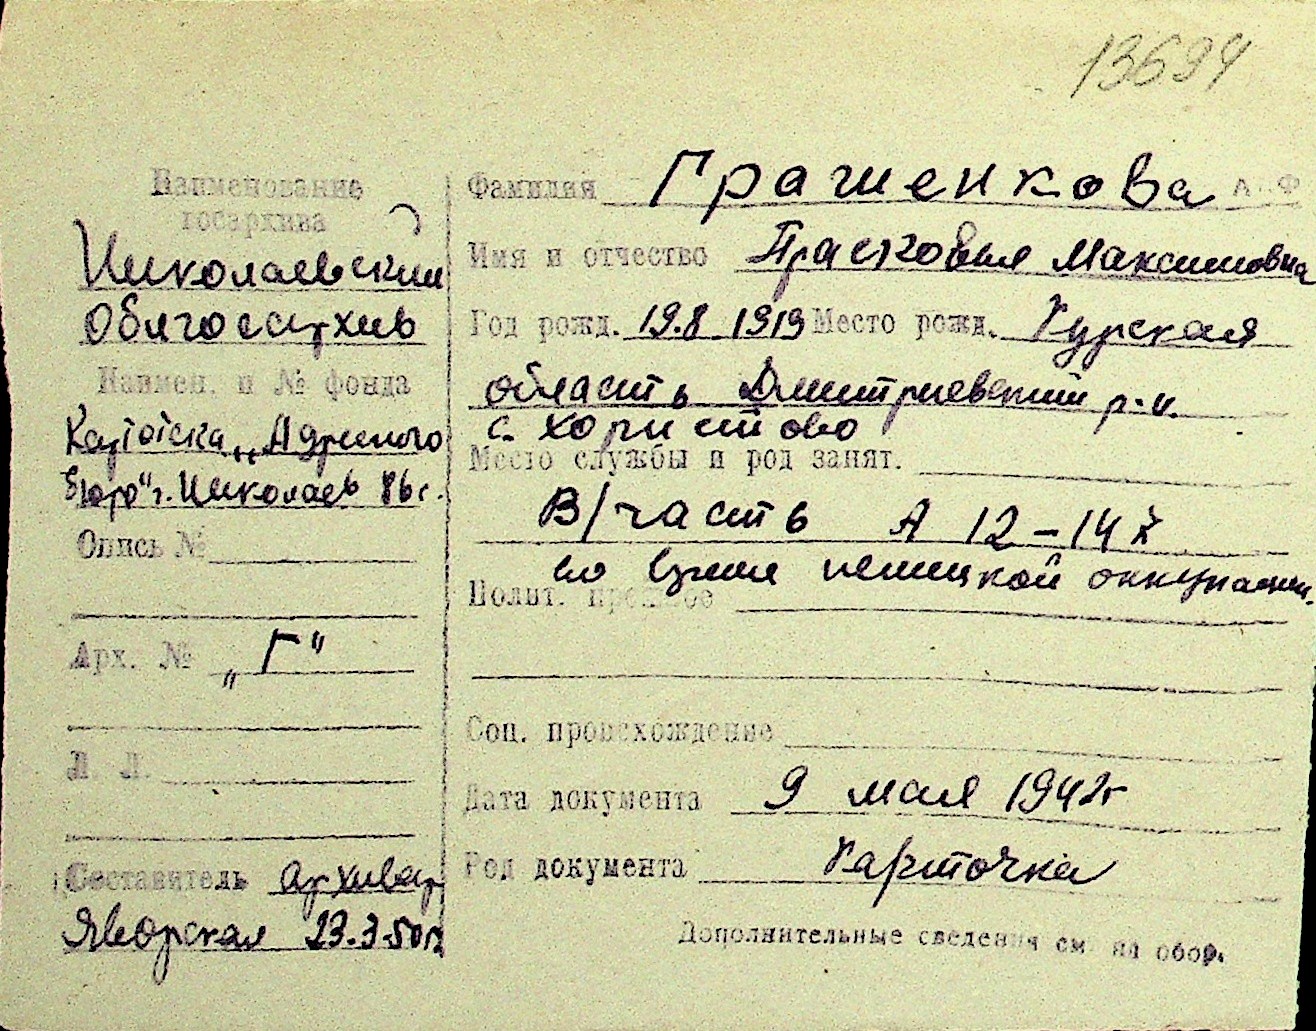 13694
Наименование
госархива
Николаевский
Облгосархив
Наимен. и № фонда
Картотека „Адресного
Бюро" г. Николаев
Опись №
Арх. № „Г"
Л. Л.
Составитель архивар
Яворская 23.3.50 г.
Фамилия Грашенкова
Имя и отчество Прасковья Максимовна
Год рожд. 19.8 1919 Место рожд. Курская
область Дмитриевский р-н.
с. Хористово
Место службы и род занят.
В/часть А 12-147
во время немецкой оккупации.
Полит. прошлое
Соц. происхождение
Дата документа 9 мая 1942г
Род документа Карточка
Дополнительные сведения см на обор.